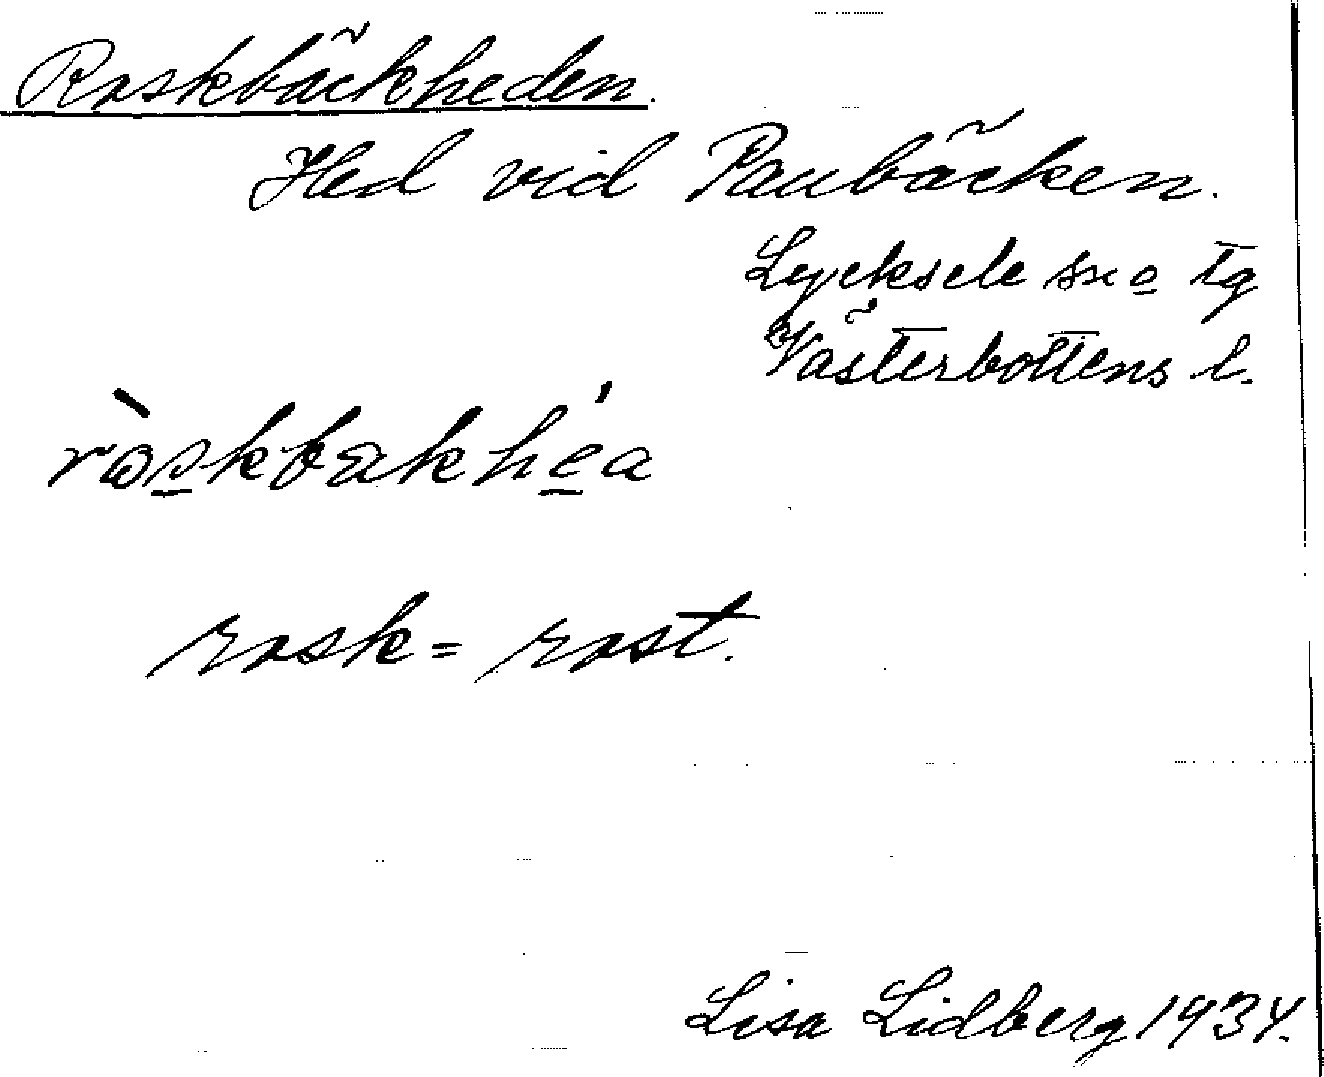 Raskbäckheden.
Hed vid Paubäcken.
Lycksele sn o tg
Västerbottens l.
ràskbækhéa
rask = rast.
Lisa Lidberg 1934.